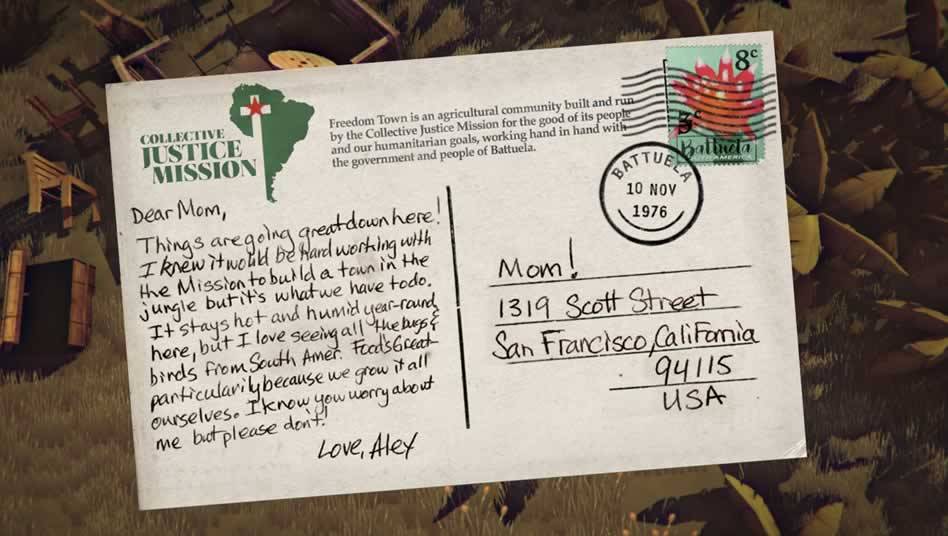 COLLECTIVE
JUSTICE
MISSION
Freedom Town is an agricultural community built and run
by the Collective Justice Mission for the good of its people
and our humanitarian goals, working hand in hand with
the government and people of Battuela.
8c
3c
Battuela
SOUTH AMERICA
BATTUELA
10 NOV
1976
Dear Mom,
Things are going great down here!
I knew it would be hard working with
the Mission to build a town in the
jungle but it's what we have to do.
It stays hot and humid year-round
here, but I love seeing all the bugs &
birds from South Amer. Food's Great
particularily because we grow it all
ourselves. I know you worry about
me but please don't!
Love, Alex
Mom!
1319 Scott Street
San Francisco, California
94115
USA